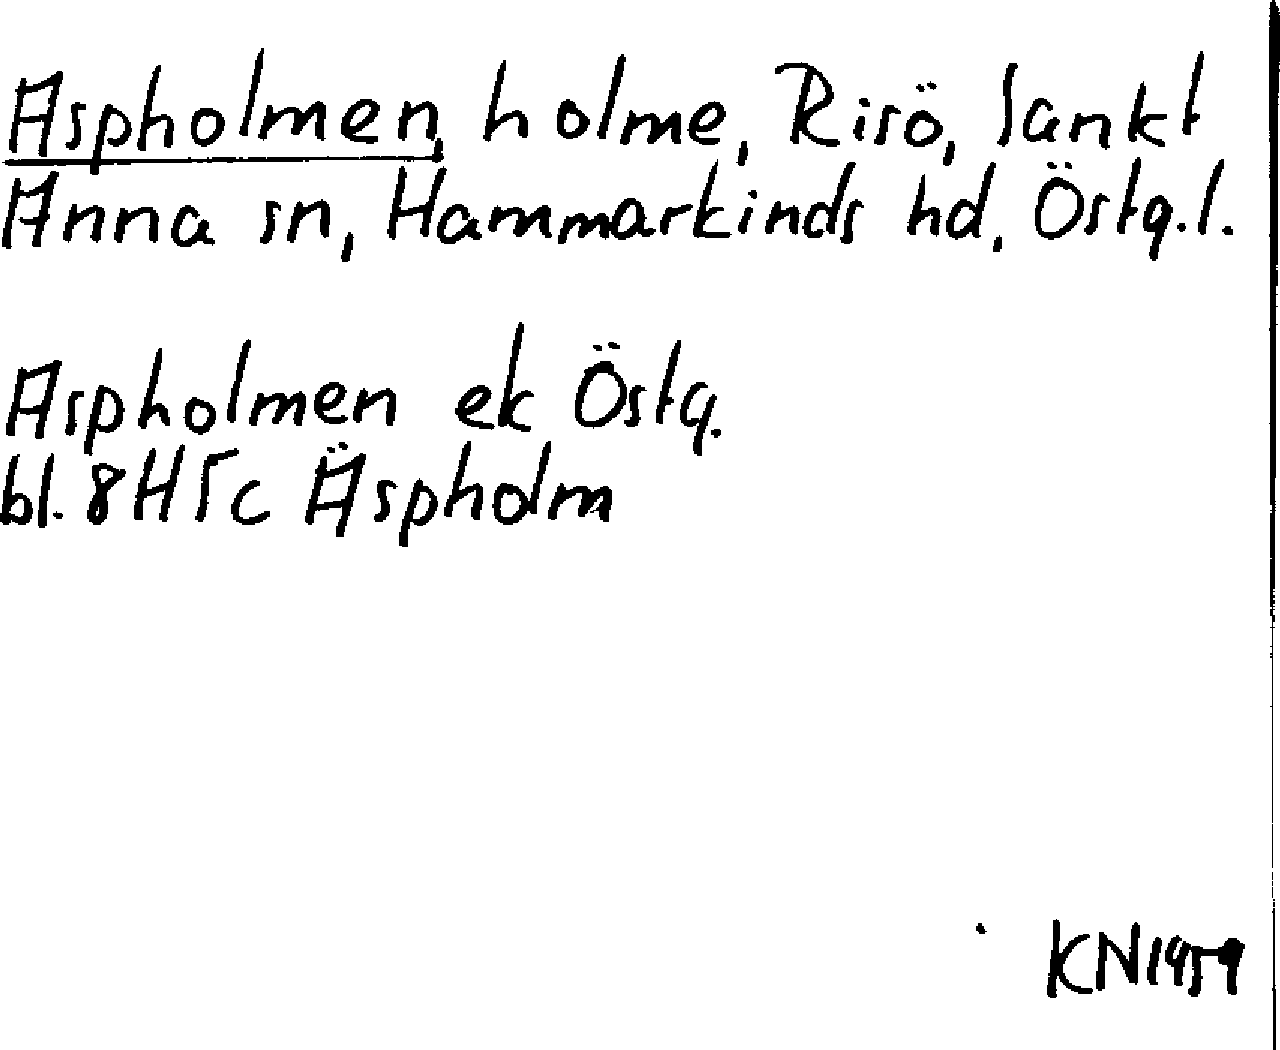 Aspholmen, holme, Risö, Sankt
Anna sn, Hammarkinds hd, Östg.l.
Aspholmen ek Östg.
bl. 8H5c Äspholm
KN1959